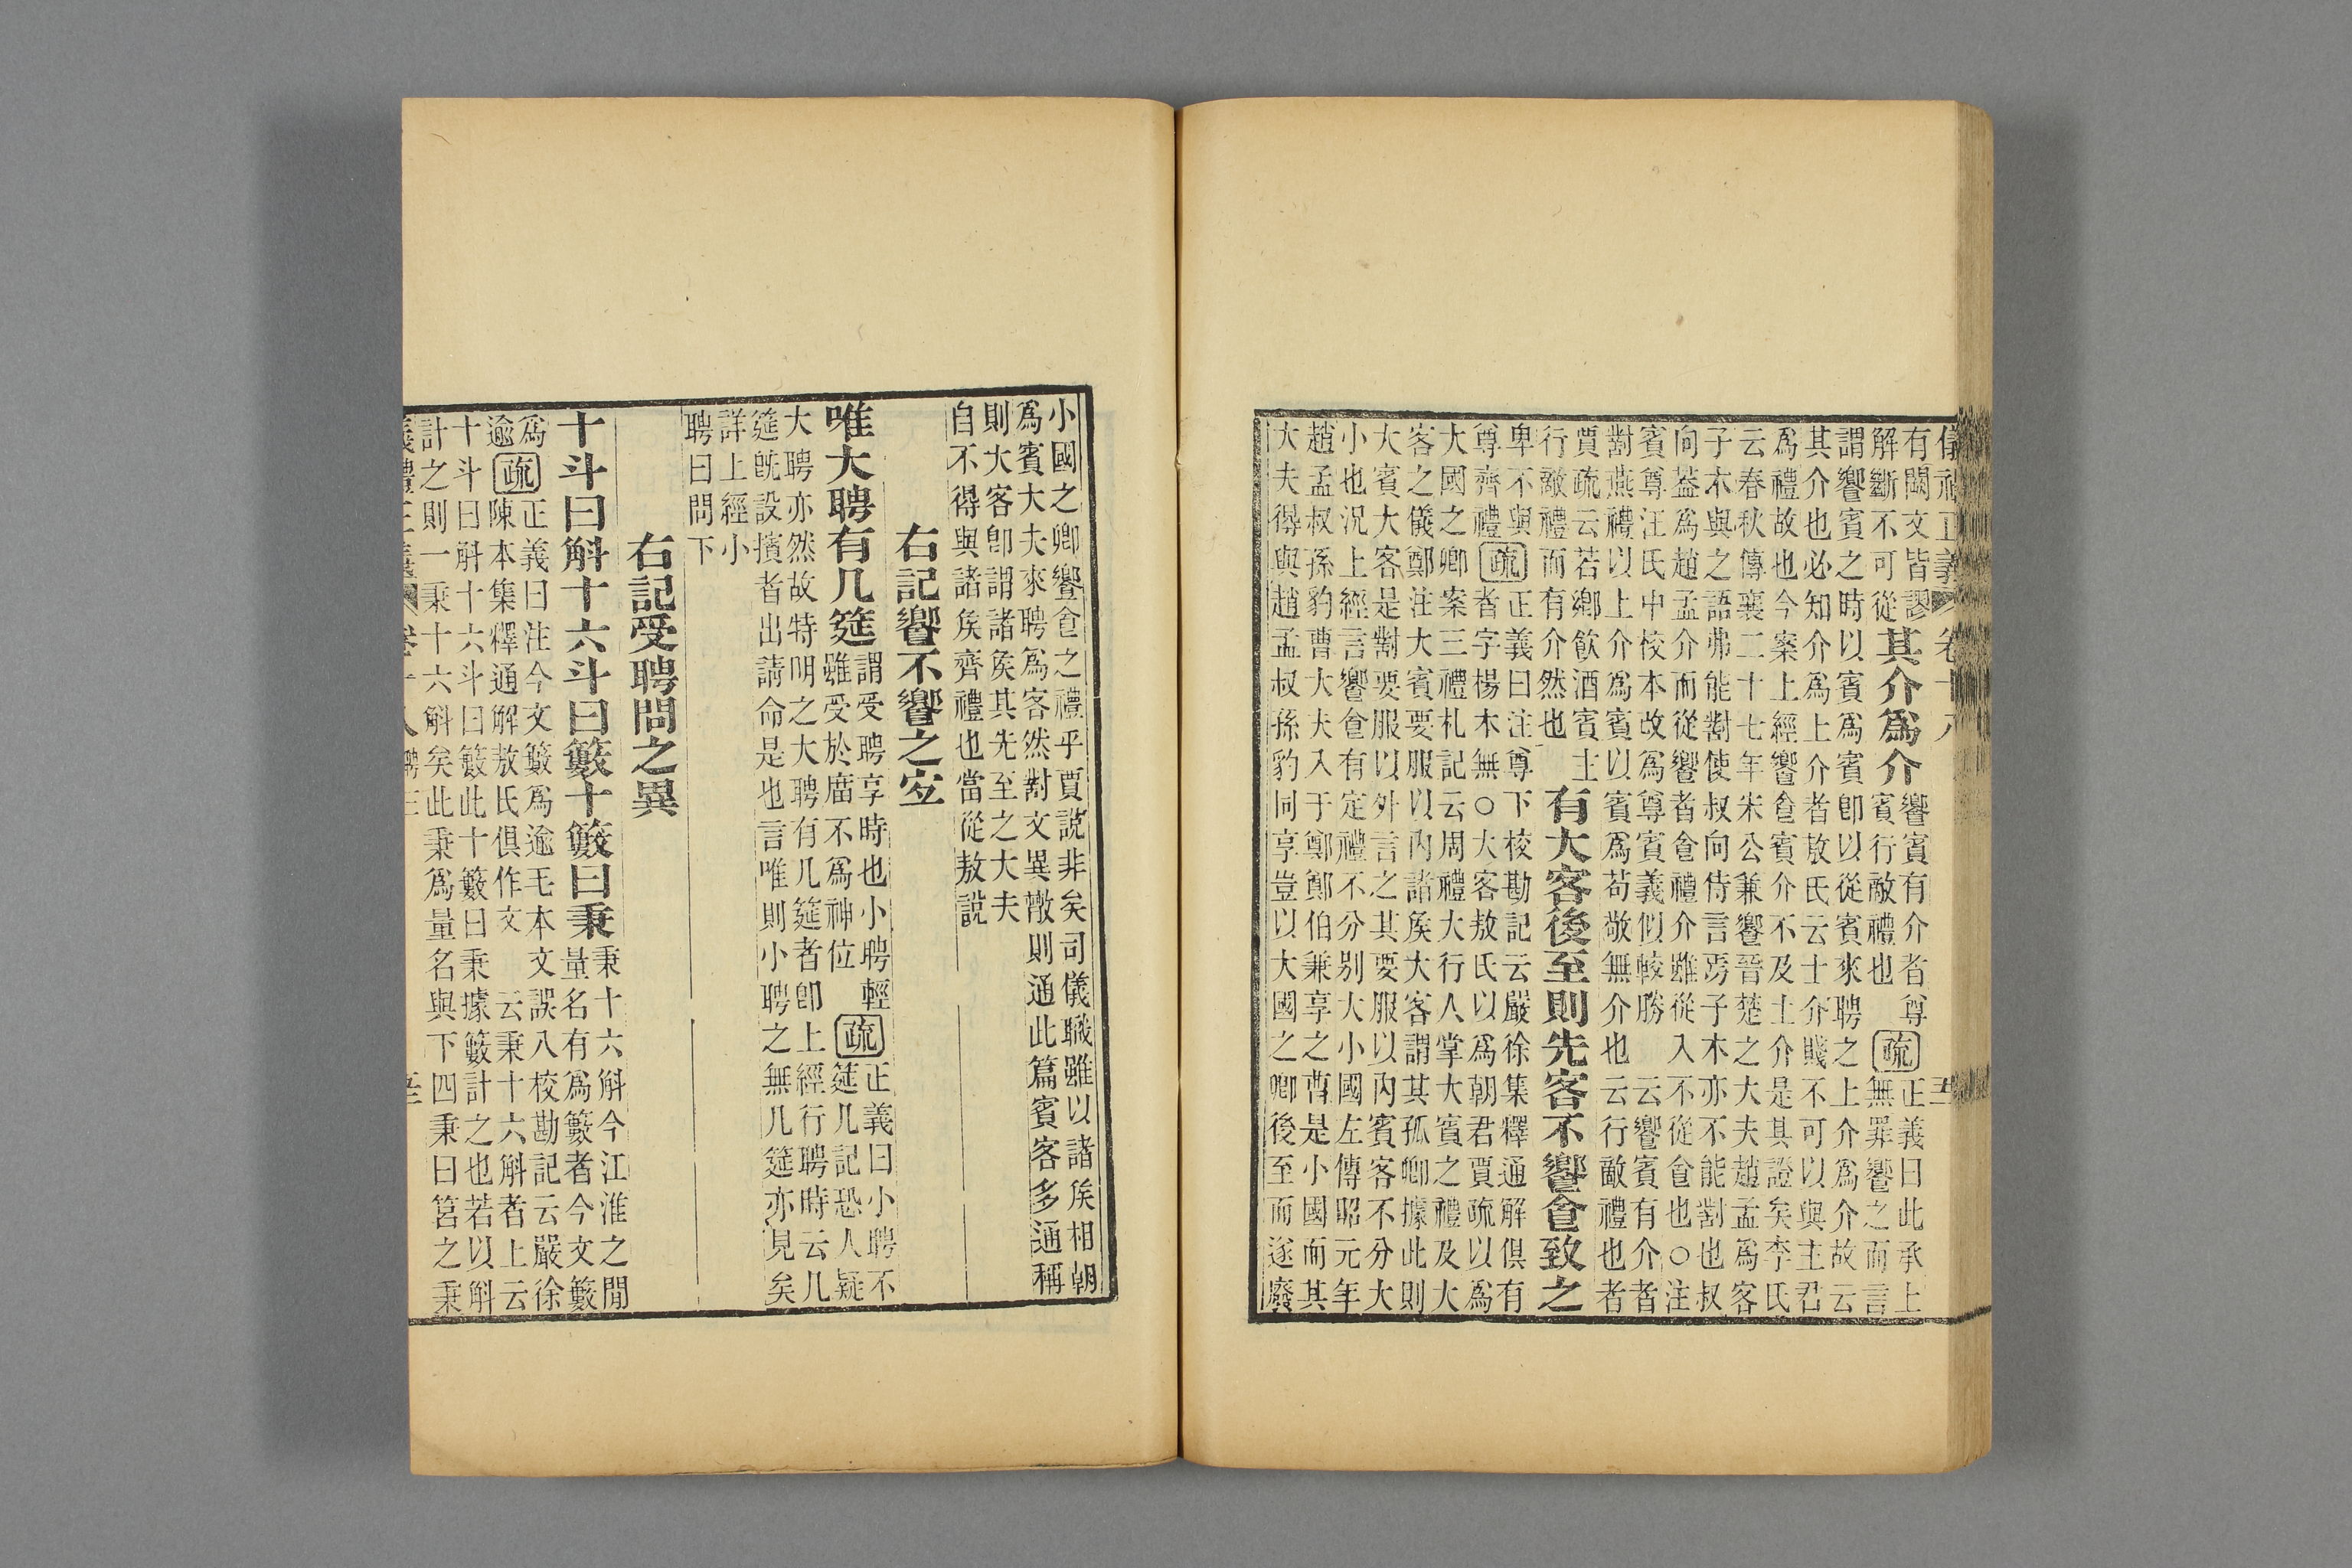 儀禮正義 卷十八 五
有闕文皆謬
解斷不可從
其介爲介
饗賓有介者尊
賓行敵禮也
疏
正義曰此承上
無罪饗之而言
謂饗賓之時以賓爲賓卽以從賓來聘之上介爲介故云
其介也必知介爲上介者敖氏云士介賤不可以與主君
爲禮故也今案上經饗食賓介不及士介是其證矣李氏
云春秋傳襄二十七年宋公兼饗晉楚之大夫趙孟爲客
子木與之語弗能對使叔向侍言焉子木亦不能對也叔
向蓋爲趙孟介而從饗者食禮介雖從入不從食也○注
賓尊汪氏中校本改爲尊賓義似較勝 云饗賓有介者
對燕禮以上介爲賓以賓爲苟敬無介也 云行敵禮也者
賈疏云若鄉飲酒賓主
行敵禮而有介然也
有大客後至則先客不饗食致之
卑不與
尊齊禮
疏
正義曰注尊下校勘記云嚴徐集釋通解俱有
者字楊本無○大客敖氏以爲朝君賈疏以爲
大國之卿案三禮札記云周禮大行人掌大賓之禮及大
客之儀鄭注大賓要服以內諸矦大客謂其孤卿據此則
大賓大客是對要服以外言之其要服以內賓客不分大
小也況上經言饗食有定禮不分別大小國左傳昭元年
趙孟叔孫豹曹大夫入于鄭鄭伯兼享之曹是小國而其
大夫得與趙孟叔孫豹同享豈以大國之卿後至而遂廢
小國之卿饗食之禮乎賈說非矣司儀職雖以諸矦相朝
爲賓大夫來聘爲客然對文異散則通此篇賓客多通稱
則大客卽謂諸矦其先至之大夫
自不得與諸矦齊禮也當從敖說
右記饗不饗之宜
唯大聘有几筵
謂受聘享時也小聘輕
雖受於廟不爲神位
疏
正義曰小聘不
筵几記恐人疑
大聘亦然故特明之大聘有几筵者卽上經行聘時云几
筵旣設擯者出請命是也言唯則小聘之無几筵亦見矣
詳上經小
聘曰問下
右記受聘問之異
十斗曰斛十六斗曰籔十籔曰秉
秉十六斛今江淮之閒
量名有爲籔者今文籔
爲
逾
疏
正義曰注今文籔爲逾毛本文誤八校勘記云嚴徐
陳本集釋通解敖氏俱作文 云秉十六斛者上云
十斗曰斛十六斗曰籔此十籔曰秉據籔計之也若以斛
計之則一秉十六斛矣此秉爲量名與下四秉曰筥之秉